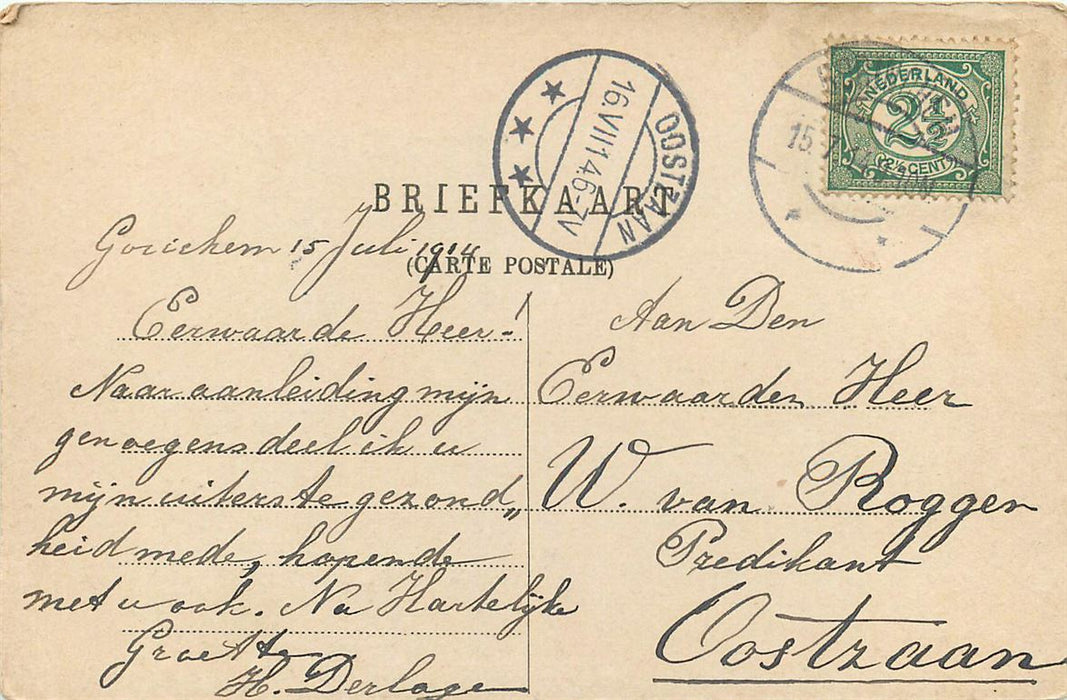 NEDERLAND
2½
(2½ CENT)
15.7.14
OOSTZAAN
16.VII14.6-7V
BRIEFKAART
(CARTE POSTALE)
Gorichem 15 Juli 1914
Eerwaarde Heer!
Naar aanleiding mijn
genoegens deel ik u
mijn uiterste gezond„
heid mede, hopende
met u ook. Na Hartelijke
Groette
H. Derlage
Aan Den
Eerwaarden Heer
W. van Roggen
Predikant
Oostzaan